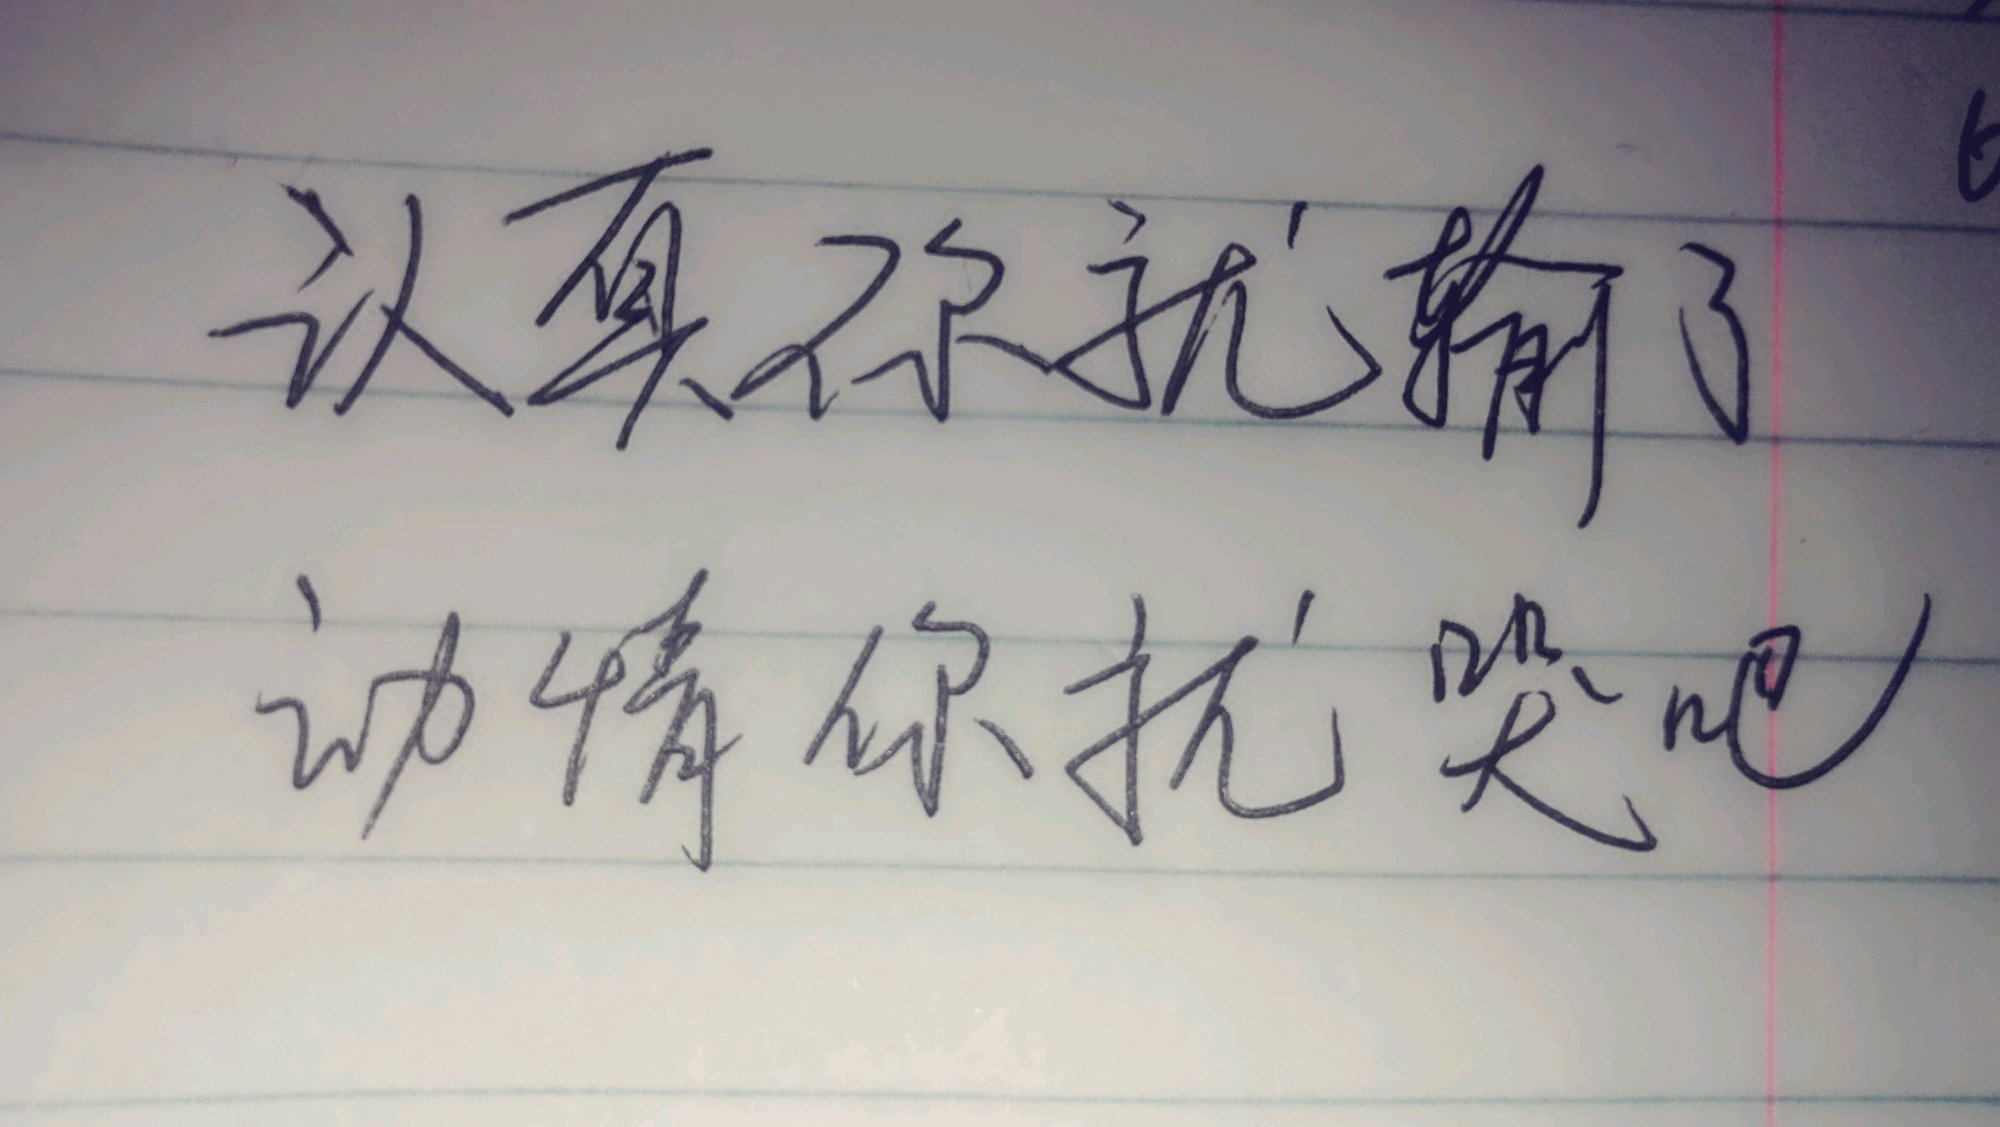 认真你就输了
动情你就哭吧